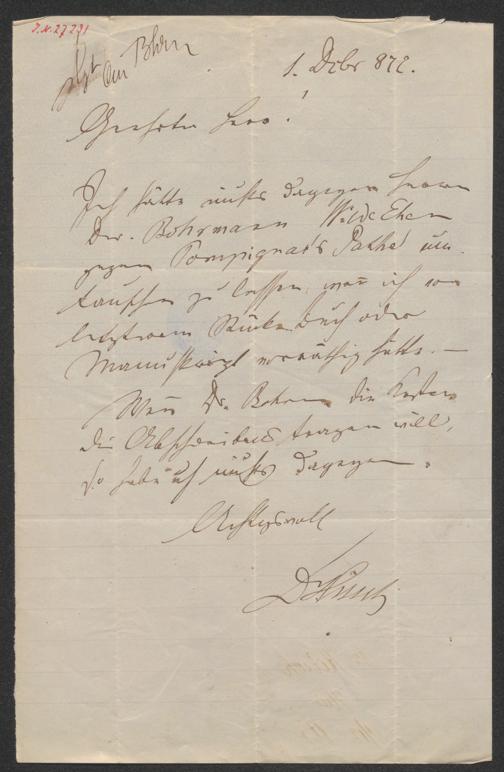 J.N. 27231
An Bhrn
1. Dzbr 872.
Geehrter Herr!
Ich hätte nichts dagegen Herrn
Dr. Bohrmann Wilde Ehen
gegen Pompignac's Pathe um-
tauschen zu lassen, wen̄ ich von
letzterem Stücke Buch oder
Manuskript vorräthig hätte. —
Wen̄ Dr. Bohrm die Kosten
die Abschreibens tragen will,
so habe ich nichts dagegen.
Achtungsvoll